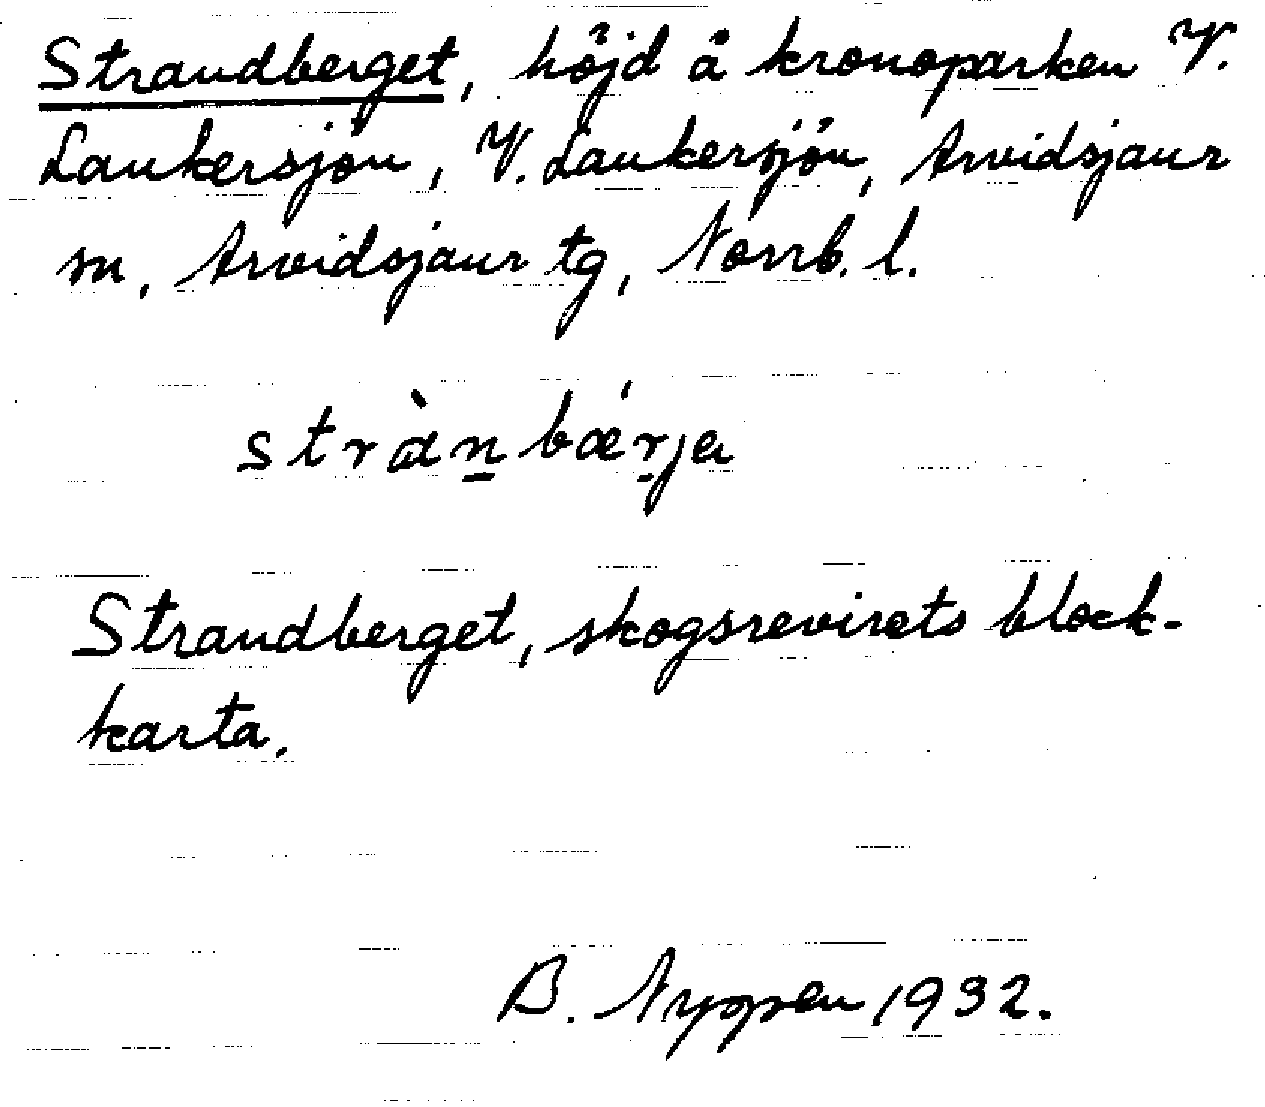 Strandberget, höjd å kronoparken V.
Laukersjön, V. Laukersjön, Arvidsjaur
sn, Arvidsjaur tg, Norrb. l.
stràn̲bǽr̲ja
Strandberget, skogsrevirets block-
karta.
B. Nyppen 1932.